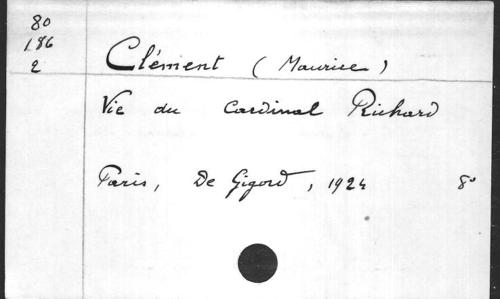 80
186
2
Clément (Maurice)
Vie du Cardinal Richard
Paris, De Gigord, 1924 8°